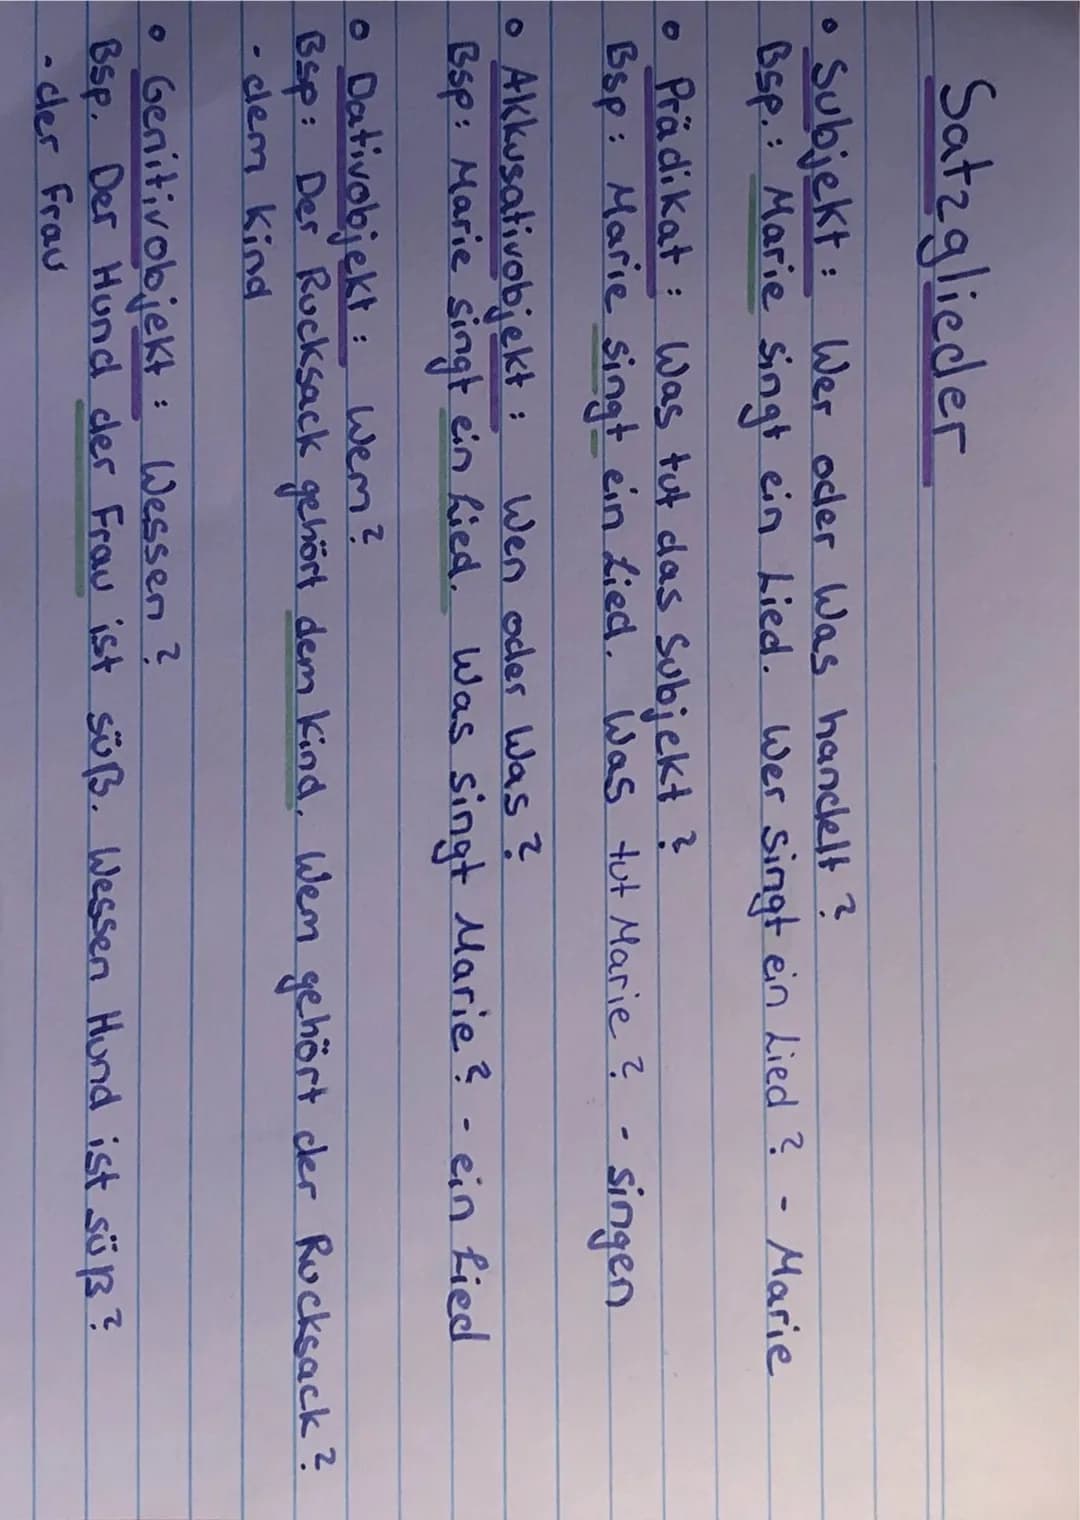 Satzglieder
• Subjekt: Wer oder Was handelt?
Bsp.: Marie singt ein Lied. Wer singt ein Lied? - Marie
• Prädikat: Was tut das Subjekt?
Bsp: Marie singt ein Lied. Was tut Marie? - singen
• Akkusativobjekt: Wen oder Was?
Bsp: Marie singt ein Lied. Was singt Marie? - ein Lied
• Dativobjekt: Wem?
Bsp: Der Rucksack gehört dem Kind. Wem gehört der Rucksack?
- dem Kind
• Genitivobjekt: Wessen?
Bsp. Der Hund der Frau ist süß. Wessen Hund ist süß?
- der Frau